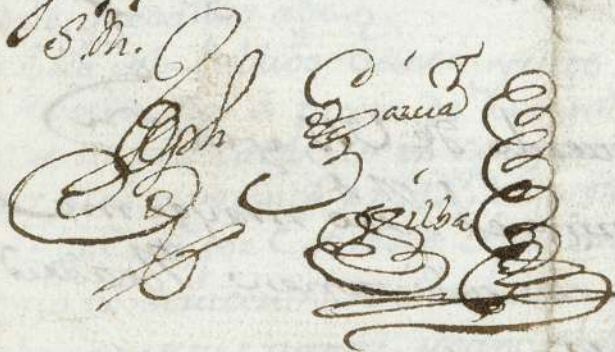 S.M.
Joseph Garcia
Silba